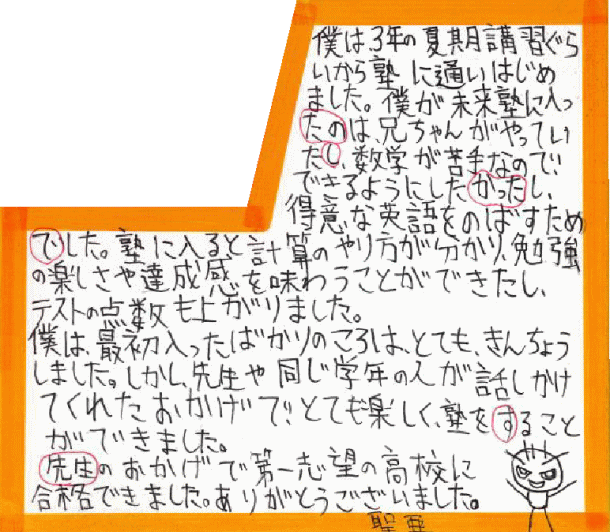 僕は3年の夏期講習ぐら
いから塾に通いはじめ
ました。僕が未来塾に入っ
たのは、兄ちゃんがやってい
たし、数学が苦手なので、
できるようにしたかったし、
得意な英語をのばすため
でした。塾に入ると計算のやり方が分かり、勉強
の楽しさや達成感を味わうことができたし、
テストの点数も上がりました。
僕は、最初入ったばかりのころは、とても、きんちょう
しました。しかし、先生や同じ学年の人が話しかけ
てくれたおかげで、とても楽しく、塾をすること
ができました。
先生のおかげで第一志望の高校に
合格できました。ありがとうございました。